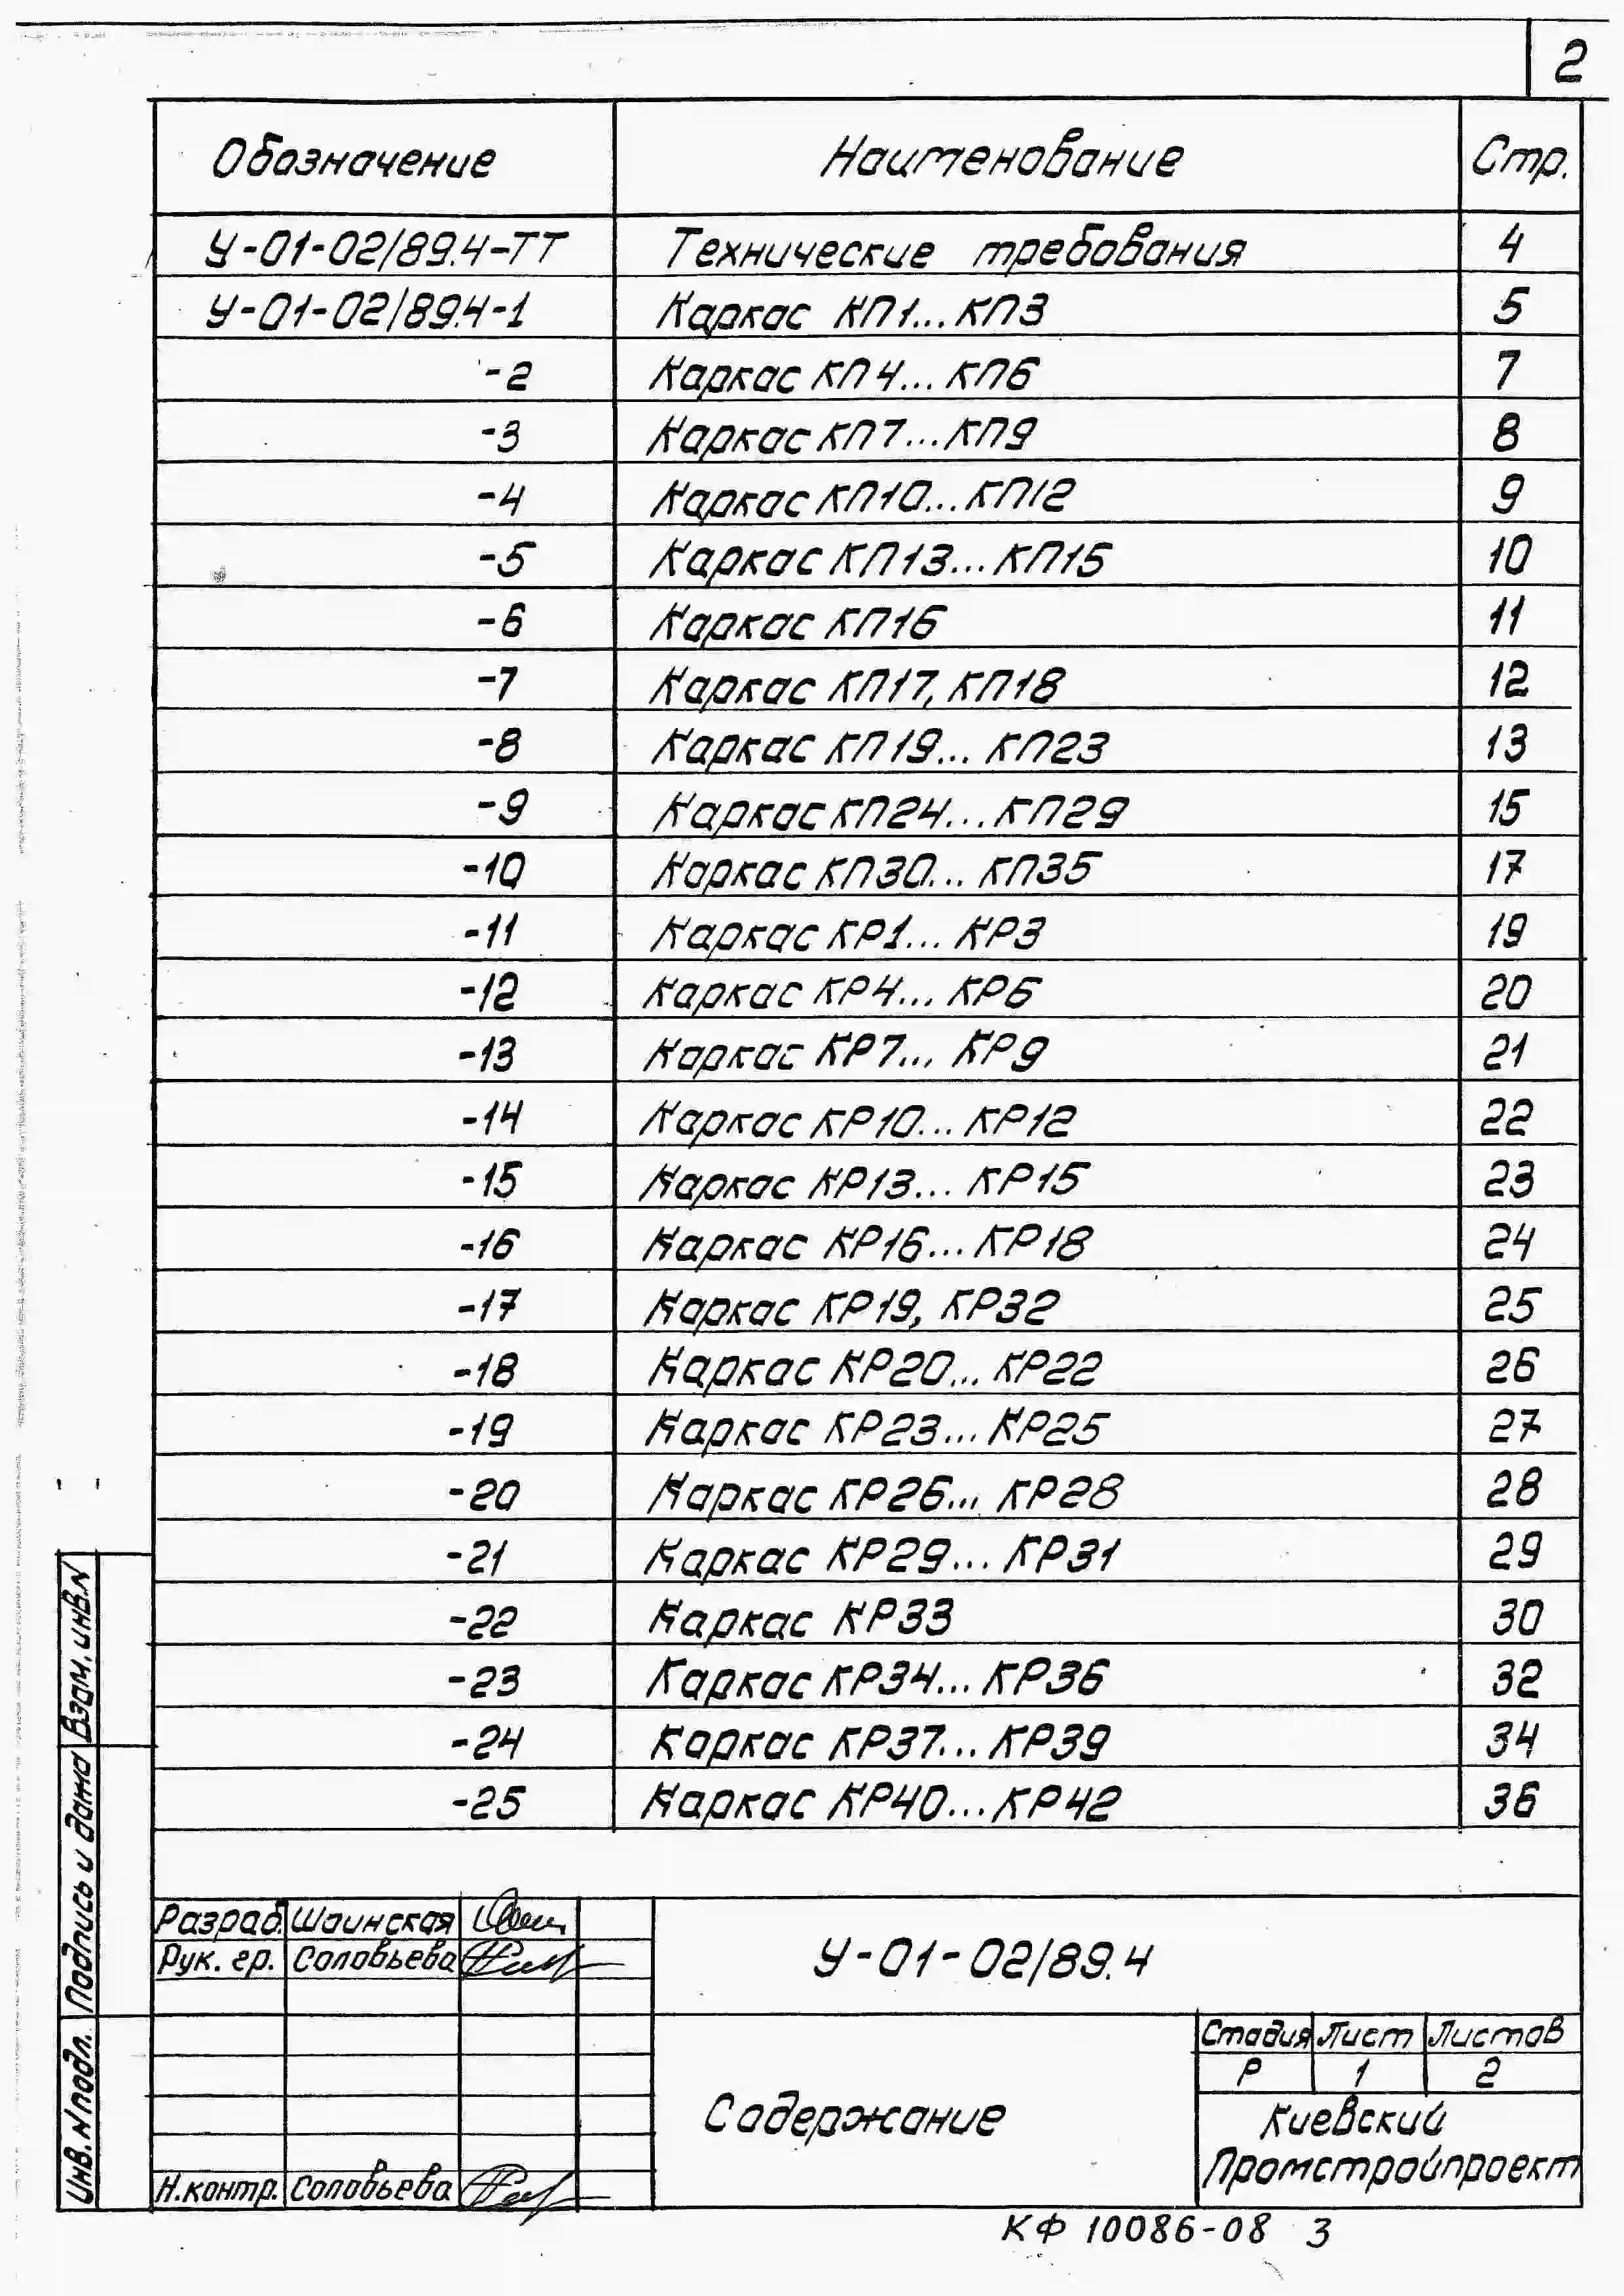 2
Обозначение Наименование Стр.
У-01-02/89.4-ТТ Технические требования 4
У-01-02/89.4-1 Каркас КП1...КП3 5
-2 Каркас КП4...КП6 7
-3 Каркас КП7...КП9 8
-4 Каркас КП10...КП12 9
-5 Каркас КП13...КП15 10
-6 Каркас КП16 11
-7 Каркас КП17, КП18 12
-8 Каркас КП19...КП23 13
-9 Каркас КП24...КП29 15
-10 Каркас КП30...КП35 17
-11 Каркас КР1...КР3 19
-12 Каркас КР4...КР6 20
-13 Каркас КР7...КР9 21
-14 Каркас КР10...КР12 22
-15 Каркас КР13...КР15 23
-16 Каркас КР16...КР18 24
-17 Каркас КР19, КР32 25
-18 Каркас КР20...КР22 26
-19 Каркас КР23...КР25 27
-20 Каркас КР26...КР28 28
-21 Каркас КР29...КР31 29
-22 Каркас КР33 30
-23 Каркас КР34...КР36 32
-24 Каркас КР37...КР39 34
-25 Каркас КР40...КР42 36
Взам. инв. N
Подпись и дата
Инв. N подл.
Разраб. Шаинская
Рук. гр. Соловьева
Н.контр. Соловьева
У-01-02/89.4
Содержание
Стадия Лист Листов
Р 1 2
Киевский
Промстройпроект
КФ 10086-08 3